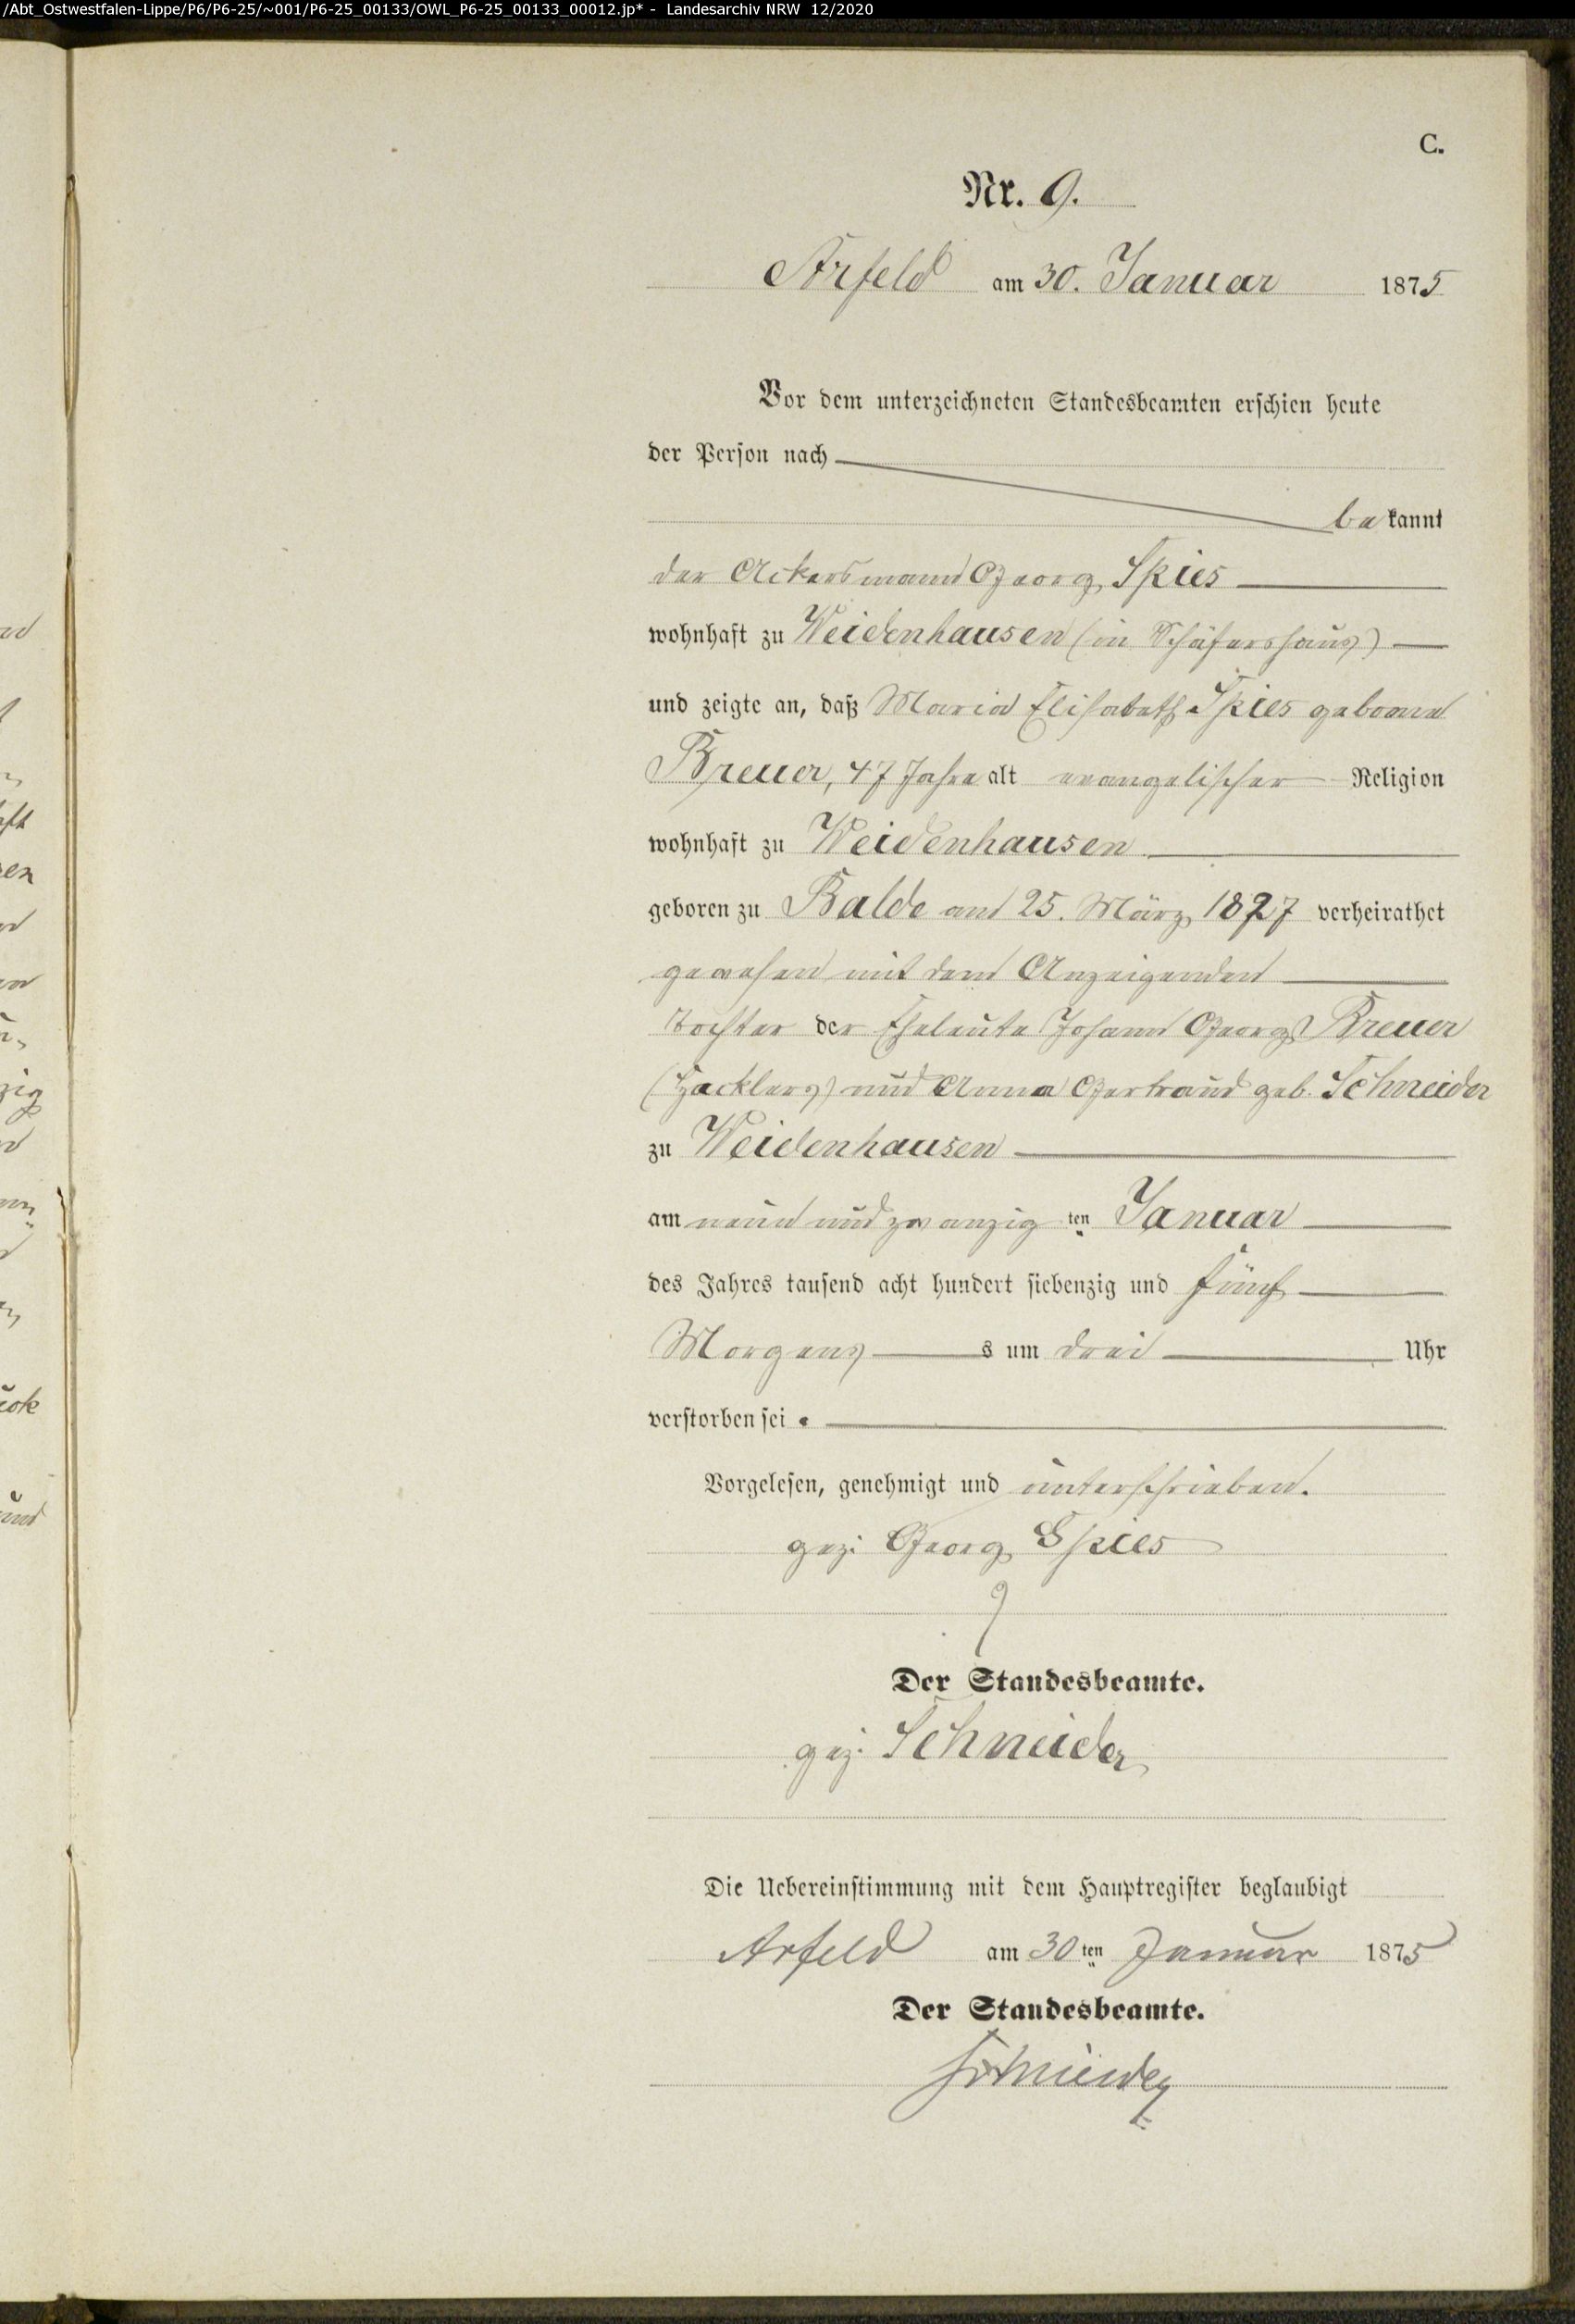 /Abt_Ostwestfalen-Lippe/P6/P6-25/~001/P6-25_00133/OWL_P6-25_00133_00012.jp* - Landesarchiv NRW 12/2020
C.
Nr. 9.
Arfeld am 30. Januar 1875
Vor dem unterzeichneten Standesbeamten erschien heute
der Person nach
bekannt
der Ackersmann Georg Spies
wohnhaft zu Weidenhausen (in Schäfershaus)
und zeigte an, daß Maria Elisabeth Spies geborene
Breuer, 47 Jahre alt evangelischer Religion
wohnhaft zu Weidenhausen
geboren zu Balde am 25. März 1827 verheirathet
gewesen mit dem Anzeigenden
Tochter der Eheleute Johann Georg Breuer
(Hacklers) und Anna Gertraud geb. Schneider
zu Weidenhausen
am neun und zwanzig ten Januar
des Jahres tausend acht hundert siebenzig und fünf
Morgens s um drei Uhr
verstorben sei.
Vorgelesen, genehmigt und unterschrieben.
gez: Georg Spies
Der Standesbeamte.
gez. Schneider
Die Uebereinstimmung mit dem Hauptregister beglaubigt
Arfeld am 30ten Januar 1875
Der Standesbeamte.
Schneider